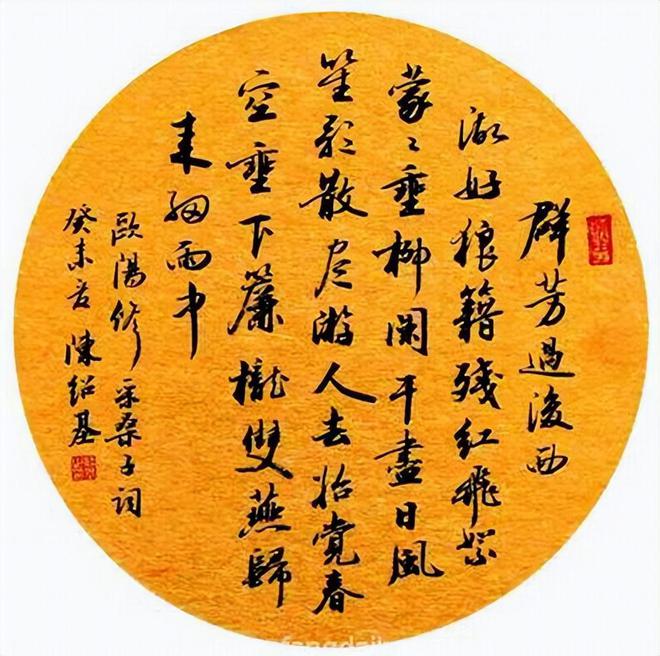 群芳過後西
湖好狼籍殘紅飛絮
蒙々垂柳闌干盡日風
笙歌散尽游人去始覺春
空垂下簾櫳雙燕歸
来細雨中
歐陽修采桑子詞
癸未陳紹基